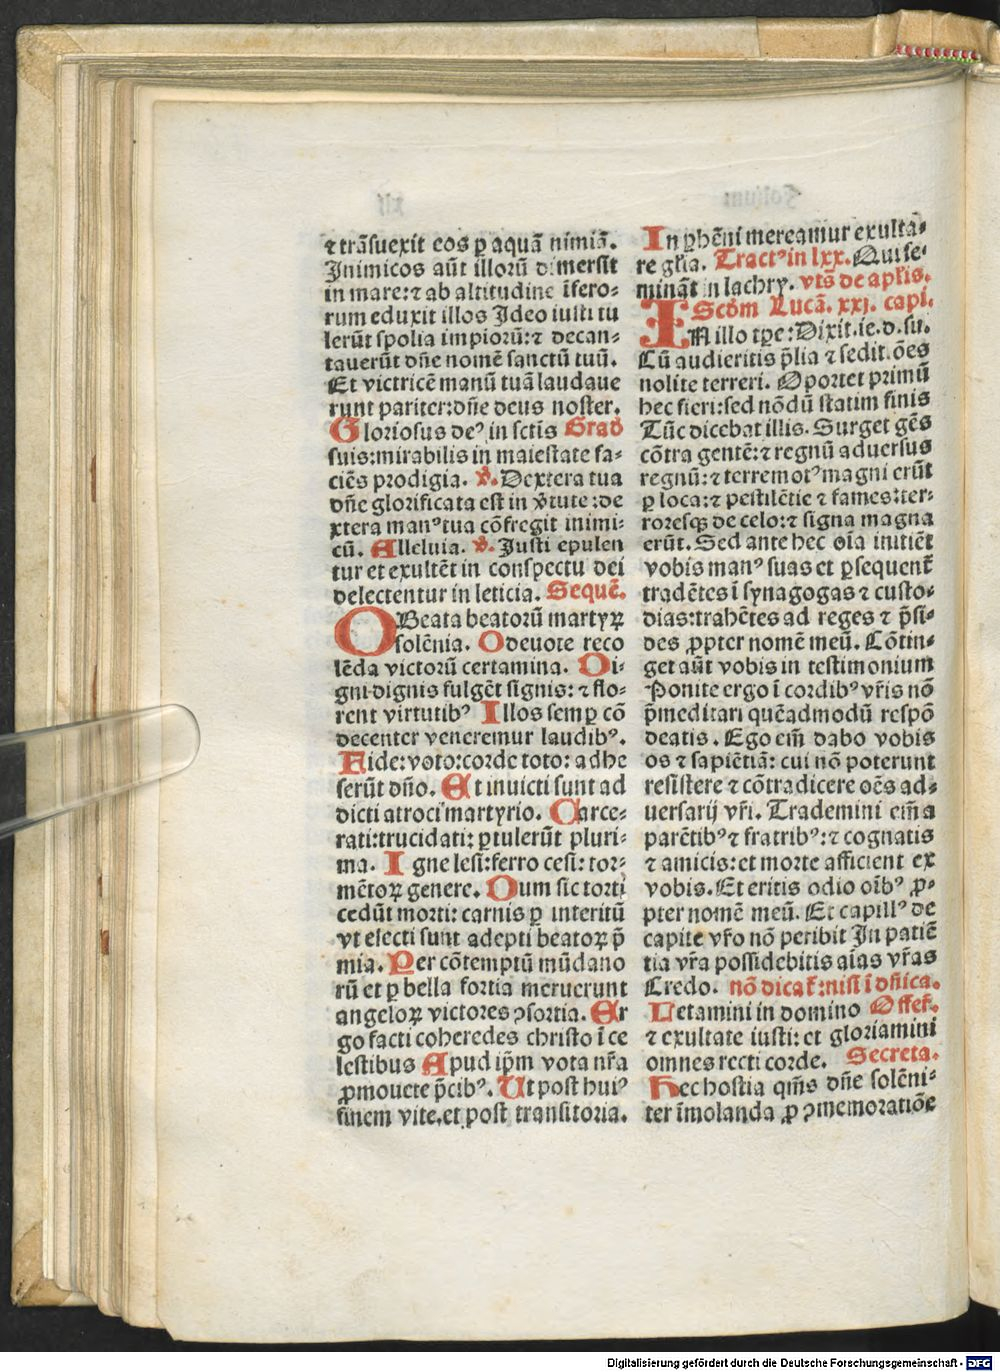 ⁊ trãſuexit eos ꝑ aquã nimiã.
Inimicos aũt illorũ dimerſit
in mare: ⁊ ab altitudine ĩfero⸗
rum eduxit illos Ideo iuſti tu
lerũt ſpolia impiorũ: ⁊ decan⸗
tauerũt dñe nomẽ ſanctũ tuũ.
Et victricẽ manũ tuã laudaue
runt pariter: dñe deus noſter.
Glorioſus deꝰ in ſctĩs Grad̃
ſuis: mirabilis in maieſtate fa⸗
ciẽs prodigia. ℣. Dextera tua
dñe glorificata eſt in ṽtute: de
xtera manꝰ tua cõfregit inimi⸗
cũ. Alleluia. ℣. Juſti epulen
tur et exultẽt in conſpectu dei
delectentur in leticia. Sequẽ.
O Beata beatorũ martyꝝ
ſolẽnia. O deuote reco
lẽda victorũ certamina. Di⸗
gni dignis fulgẽt ſignis: ⁊ flo⸗
rent virtutibꝰ Illos ſemꝑ cõ
decenter veneremur laudibꝰ.
Fide: voto: corde toto: adhe
ſerũt dño. Et inuicti ſunt ad
dicti atroci martyrio. Carce⸗
rati: trucidati: ꝑtulerũt pluri⸗
ma. Igne leſi: ferro ceſi: tor⸗
mẽtoꝝ genere. Dum ſic torti
cedũt morti: carnis ꝑ interitũ
vt electi ſunt adepti beatoꝝ p̃
mia. Per cõtemptũ mũdano
rũ et ꝑ bella fortia meruerunt
angeloꝝ victores ꝯſortia. Er
go facti coheredes chriſto ĩ ce
leſtibus Apud ip̃m vota nr̃a
ꝓmouete p̃cibꝰ. Ut poſt huiꝰ
finem vite. et poſt tranſitoria.
In ꝑhẽni mereamur exulta⸗
re gl̃ia. Tractꝰ in lxx. Qui ſe⸗
minãt in lachry. vtŝ de apl̃is.
Scd̃m Lucã. xxj. capi.
IN illo tꝑe: Dixit. ie. d. ſu.
Cũ audieritis p̃lia ⁊ ſedit. ões
nolite terreri. Oportet primũ
hec fieri: ſed nõdũ ſtatim finis
Tũc dicebat illis. Surget gẽs
cõtra gentẽ: ⁊ regnũ aduerſus
regnũ: ⁊ terremotꝰ magni erũt
ꝑ loca: ⁊ peſtilẽtie ⁊ fames: ter⸗
roreſqꝫ de celo: ⁊ ſigna magna
erũt. Sed ante hec oĩa iniciẽt
vobis manꝰ ſuas et ꝑſequent̃
tradẽtes ĩ ſynagogas ⁊ cuſto⸗
dias: trahẽtes ad reges ⁊ p̃ſi⸗
des ꝓpter nomẽ meũ. Cõtin⸗
get aũt vobis in teſtimonium
Ponite ergo ĩ cordibꝰ vr̃is nõ
p̃meditari quẽadmodũ reſpõ
deatis. Ego eĩm dabo vobis
os ⁊ ſapiẽtiã: cui nõ poterunt
reſiſtere ⁊ cõtradicere oẽs ad⸗
uerſarij vr̃i. Trademini eĩm a
parẽtibꝰ ⁊ fratribꝰ: ⁊ cognatis
⁊ amicis: et morte afficient ex
vobis. Et eritis odio oĩbꝰ ꝓ⸗
pter nomẽ meũ. Et capillꝰ de
capite vr̃o nõ peribit In patiẽ
tia vr̃a poſſidebitis aĩas vr̃as
Credo. nõ dicat̃: niſi ĩ dñica.
Letamini in domino Offer̃.
⁊ exultate iuſti: et gloriamini
omnes recti corde. Secreta.
Hec hoſtia qm̃s dñe ſolẽni⸗
ter ĩmolanda ꝓ ꝯmemoratiõe
Digitalisierung gefördert durch die Deutsche Forschungsgemeinschaft - DFG